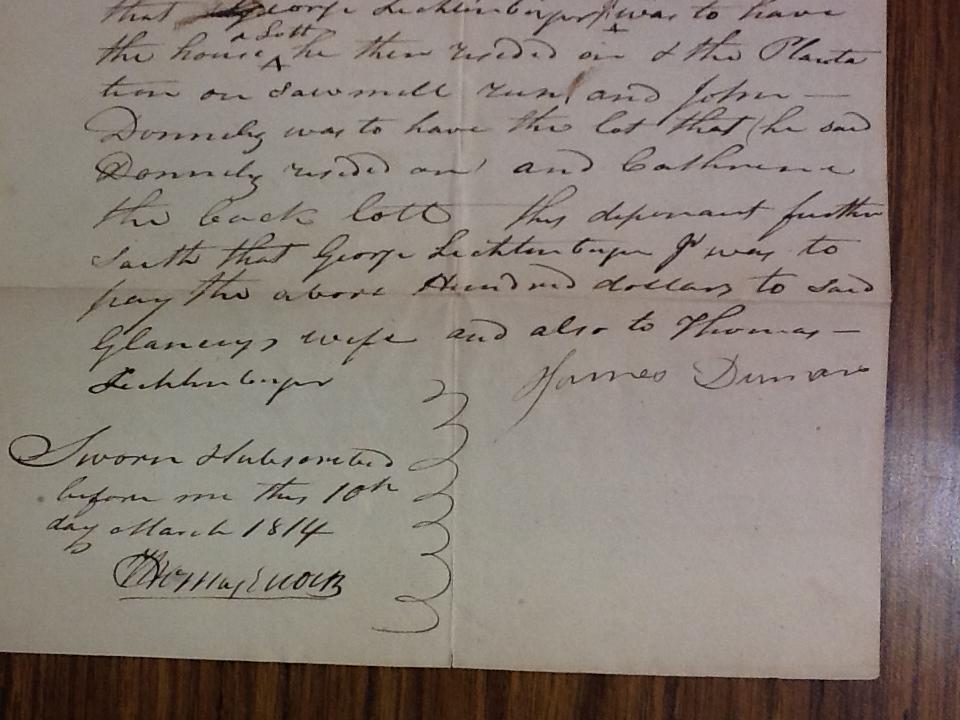 that George Lechlinberger Jr was to have
the house & Lott he then resided on & the Planta
tion on Sawmill run, and John —
Donnely was to have the lot that he said
Donnely resided on and Cathrine
the back lott this deponant further
saith that George Lechlenberger Jr was to
pay the above Hundred dollars to said
Glancys wife and also to Thomas —
Lechlenberger
James Dunan
Sworn & Subscribed
before me this 10th
day March 1814
Thomas Enoch